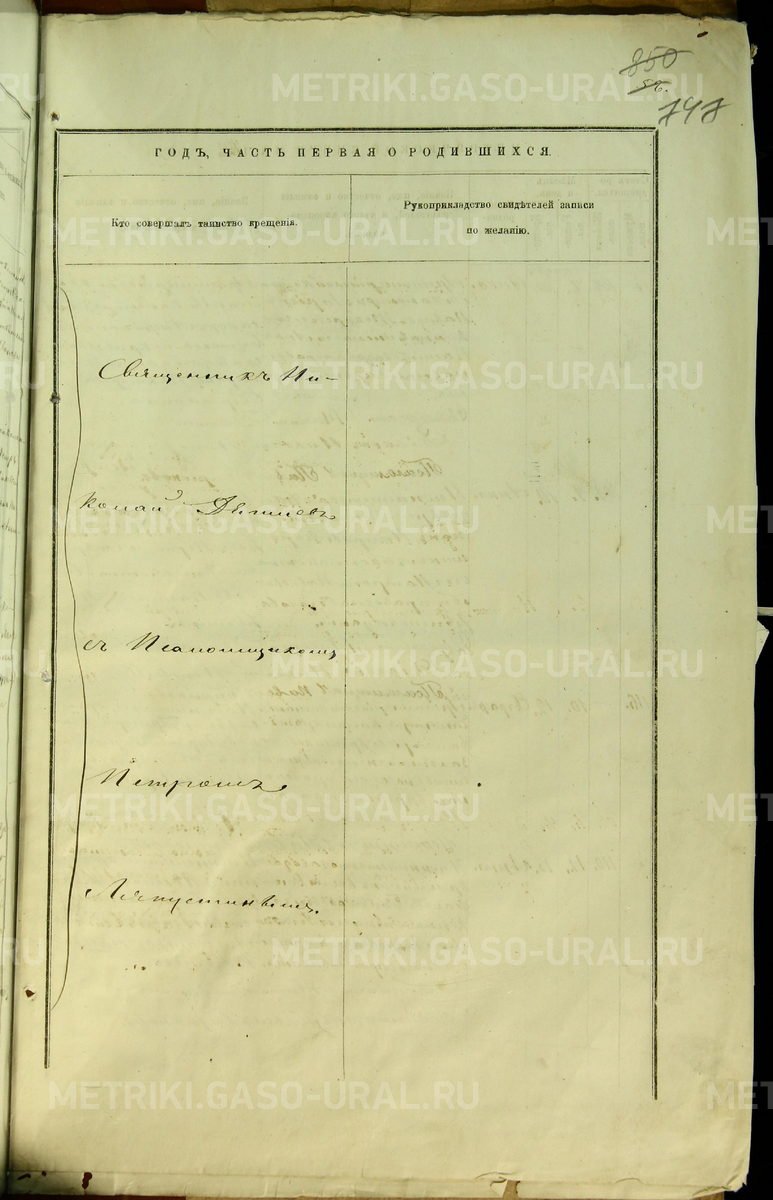 850
747
ГОДЪ, ЧАСТЬ ПЕРВАЯ О РОДИВШИХСЯ.
Кто совершалъ таинство крещенія.
Рукоприкладство свидѣтелей записи
по желанію.
Священникъ Ни-
колай
съ Псаломщикомъ
Петромъ
Ляпустинымъ.
METRIKI.GASO-URAL.RU